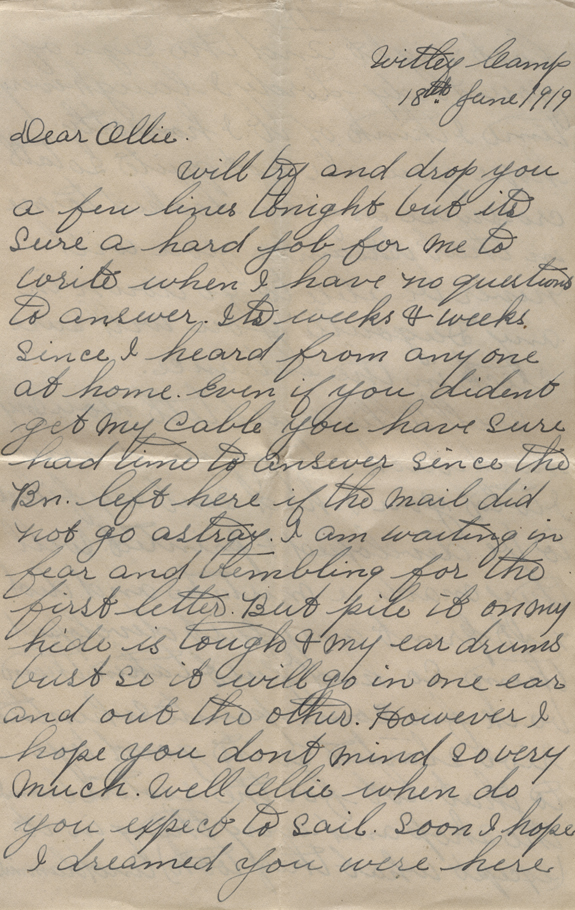 Witley Camp
18th June 1919
Dear Ollie.
Will try and drop you
a few lines tonight but its
sure a hard job for me to
write when I have no questions
to answer. Its weeks & weeks
since I heard from anyone
at home. Even if you dident
get my cable you have sure
had time to answer since the
Bn. left here if the mail did
not go astray. I am waiting in
fear and trembling for the
first letter. But pile it on my
hide is tough & my ear drums
bust so it will go in one ear
and out the other. However I
hope you dont mind so very
much. Well Ollie when do
you expect to sail. Soon I hope
I dreamed you were here